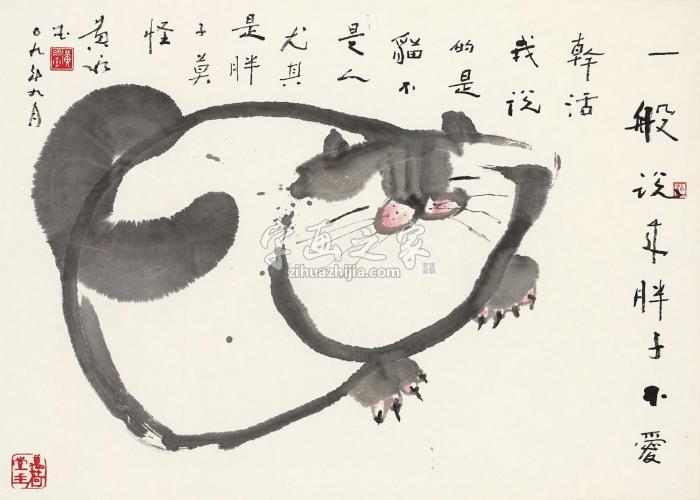 一般说来胖子不愛
幹活
我说
的是
貓不
是人
尤其
是胖
子莫
怪
黄永
玉
九年九月
字画之家
zihuazhijia.com
萬荷堂主